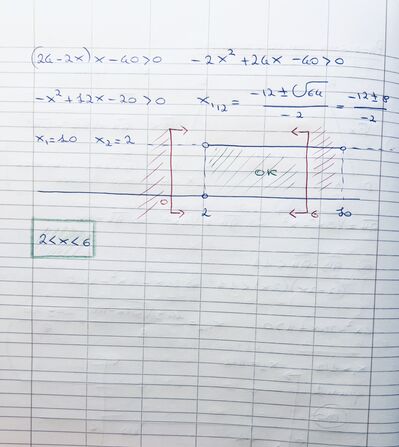 (24-2x)x-40>0 -2x²+24x-40>0
-x²+12x-20>0 x₁,₂= (-12±√64)/(-2) = (-12±8)/(-2)
x₁=10 x₂=2
OK
0 2 6 10
2<x<6